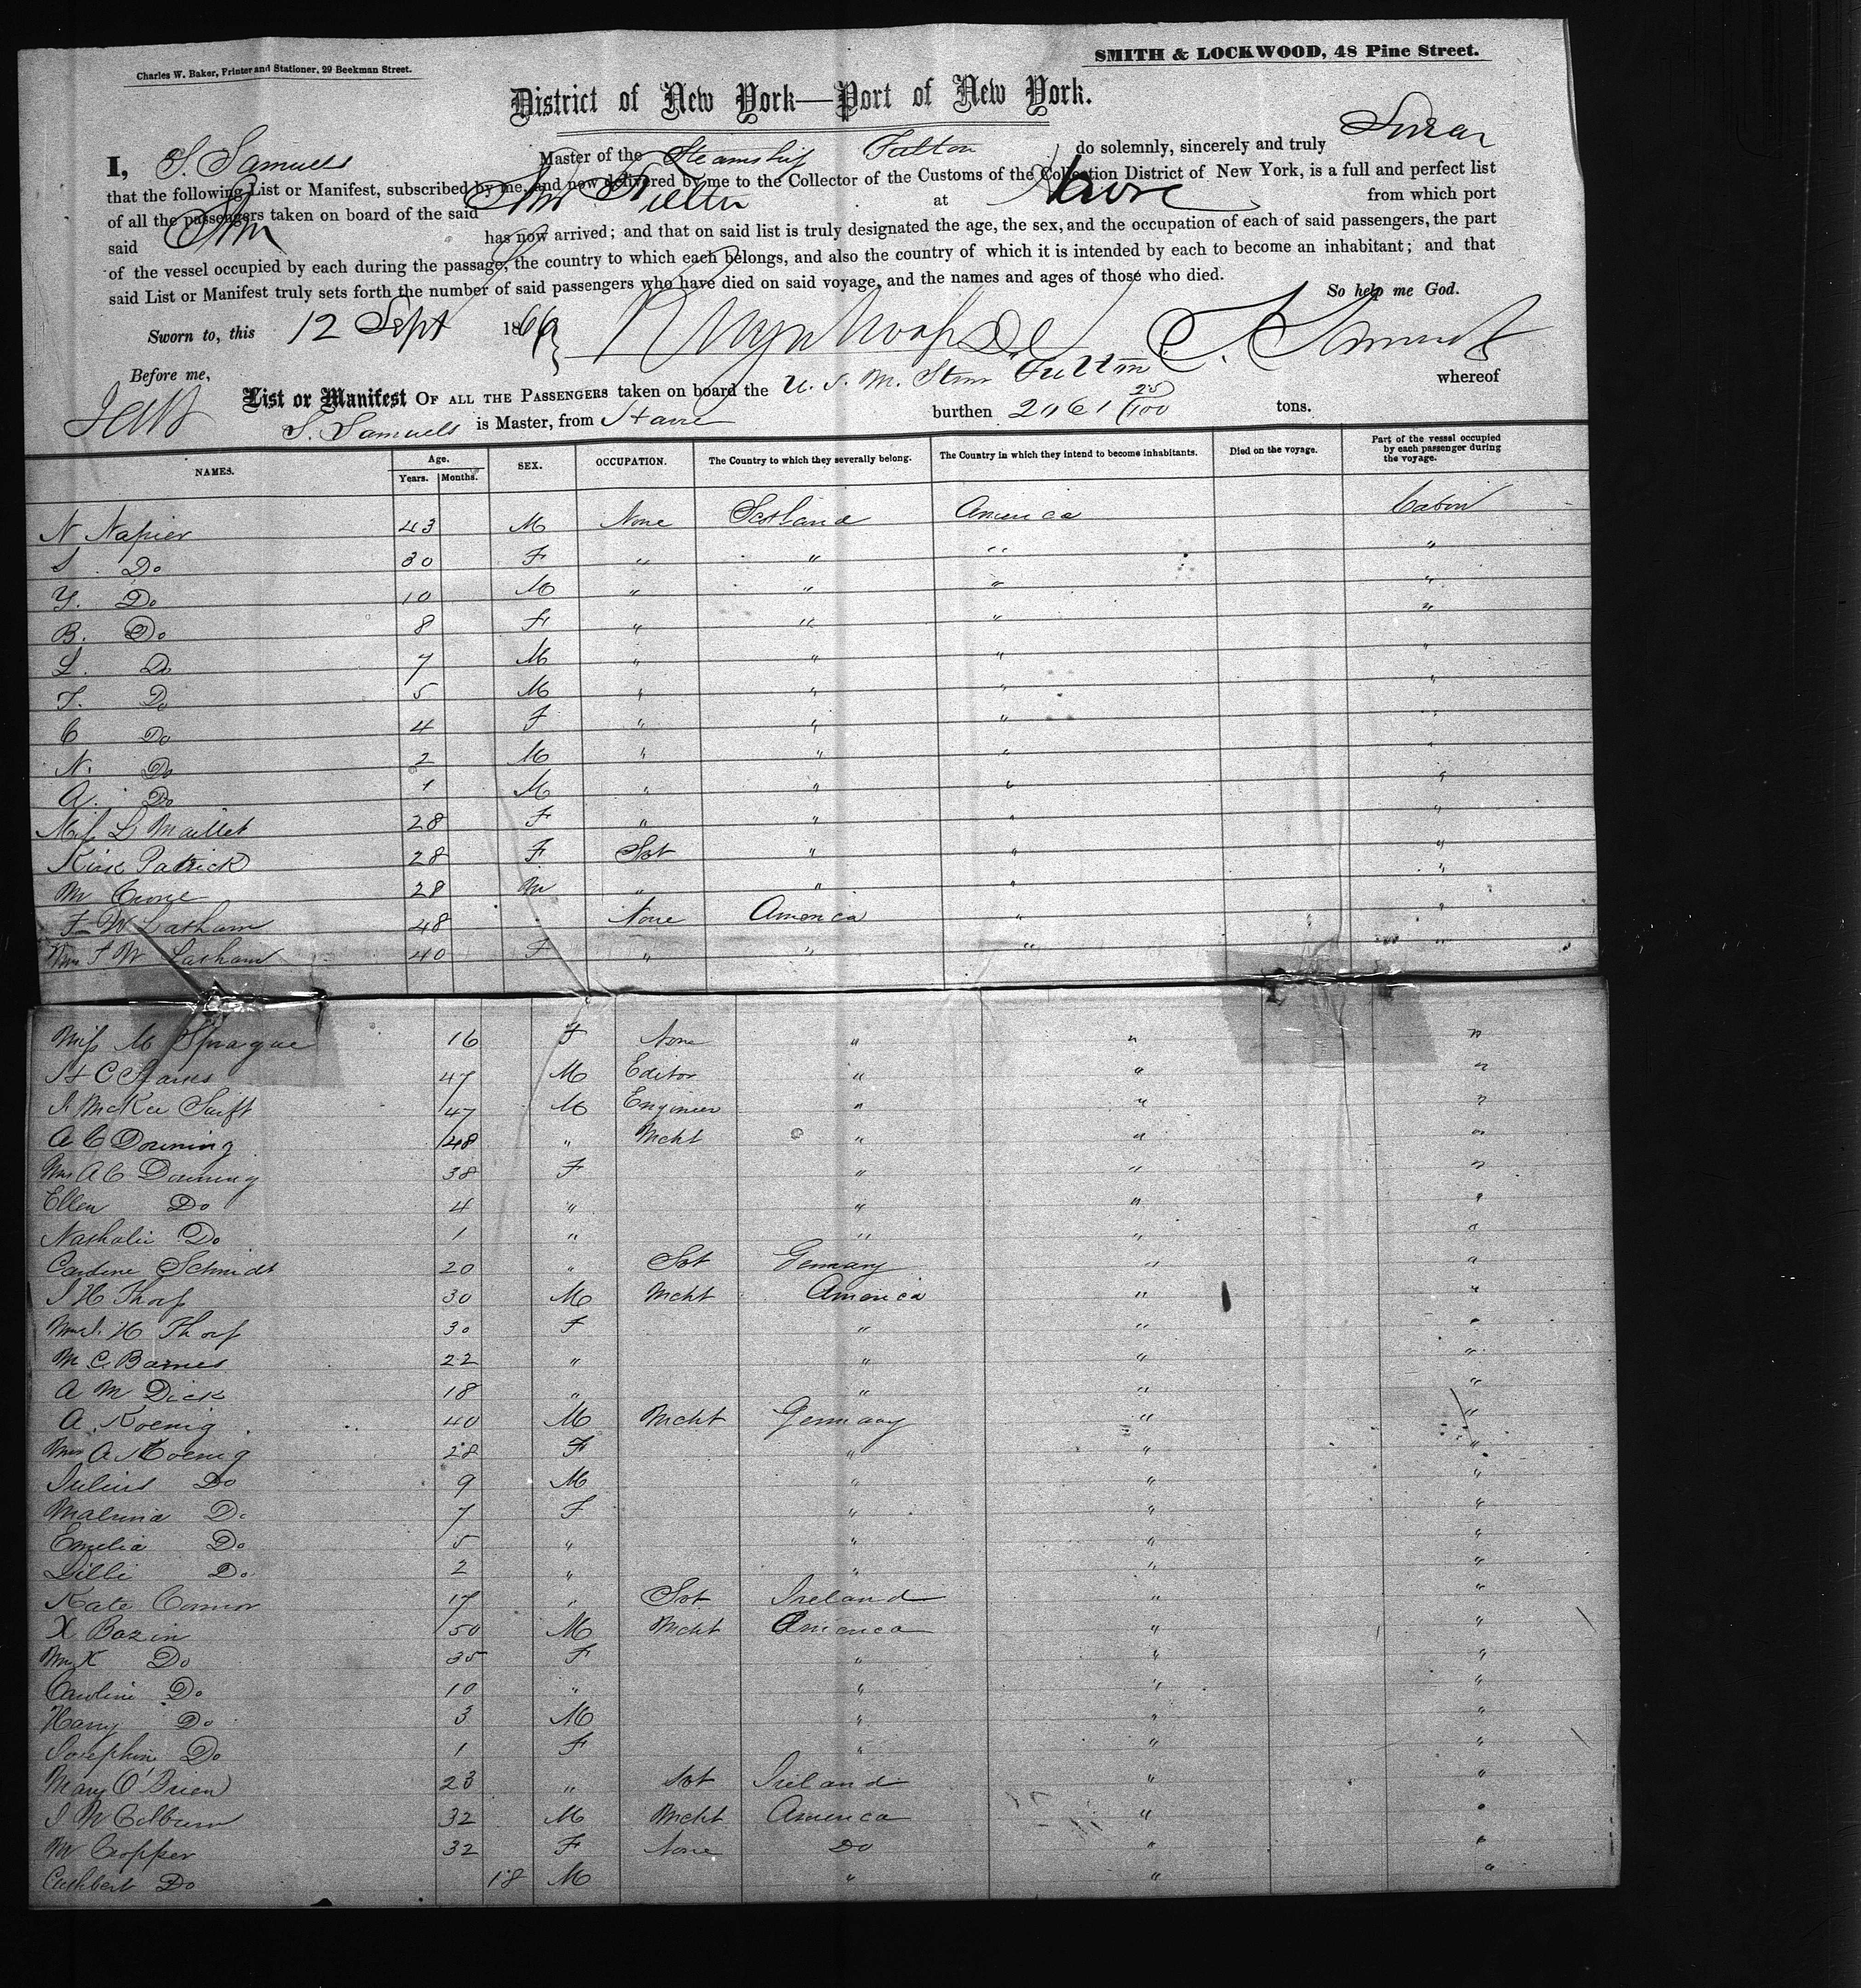 Charles W. Baker, Printer and Stationer, 29 Beekman Street.
SMITH & LOCKWOOD, 48 Pine Street.
District of New York—Port of New York.
I, S. Samuels Master of the Steamship Fulton do solemnly, sincerely and truly Swear
that the following List or Manifest, subscribed by me, and now delivered by me to the Collector of the Customs of the Collection District of New York, is a full and perfect list
of all the passengers taken on board of the said at Havre from which port
said has now arrived; and that on said list is truly designated the age, the sex, and the occupation of each of said passengers, the part
of the vessel occupied by each during the passage, the country to which each belongs, and also the country of which it is intended by each to become an inhabitant; and that
said List or Manifest truly sets forth the number of said passengers who have died on said voyage, and the names and ages of those who died.
So help me God.
Sworn to, this 12 Sept 186
Before me,
List or Manifest OF ALL THE PASSENGERS taken on board the U. S. M. Stmr Fulton whereof
S. Samuels is Master, from Havre burthen 2061 25/100 tons.
NAMES. Age. Years. Months. SEX. OCCUPATION. The Country to which they severally belong. The Country in which they intend to become inhabitants. Died on the voyage. Part of the vessel occupied by each passenger during the voyage.
N Napier 43 M None Scotland America Cabin
S Do 30 F " " " "
Y. Do 10 M " " " "
B. Do 8 F " " " "
L. Do 7 M " " " "
T. Do 5 M " " " "
C Do 4 F " " " "
N. Do 2 M " " " "
A. Do 1 M " " " "
Miss L Maillet 28 F " " " "
Kirk Patrick 28 F Svt " " "
M Crone 28 M " " " "
F W Latham 48 None America " "
Mrs F W Latham 40 F " " " "
Miss M Sprague 16 F None " " "
H C 47 M Editor " " "
J. McKee Swift 47 M Engineer " " "
A C Downing 48 " Mcht " " "
Mrs A C Downing 38 F " " "
Ellen Do 4 " " " "
Nathalie Do 1 " " " "
Caroline Schmidt 20 " Svt Germany " "
J H Thorp 30 M Mcht America " "
Mrs J. H Thorp 30 F " " "
M C Barnes 22 " " " "
A M Dick 18 " " " "
A. Koenig 40 M Mcht Germany " "
Mrs A Koenig 28 F " " "
Julius Do 9 M " " "
Malvina Do 7 F " " "
Emelia Do 5 " " " "
Lilli Do 2 " " " "
Kate Connor 17 " Svt Ireland " "
X Bazin 50 M Mcht America " "
Mrs X Do 35 F " " "
Caroline Do 10 " " " "
Harry Do 3 M " " "
Josephine Do 1 F " " "
Mary O'Brien 23 " Svt Ireland " "
J W Colburn 32 M Mcht America " "
M Cropper 32 F None Do " "
Cuthbert Do 18 M " " "